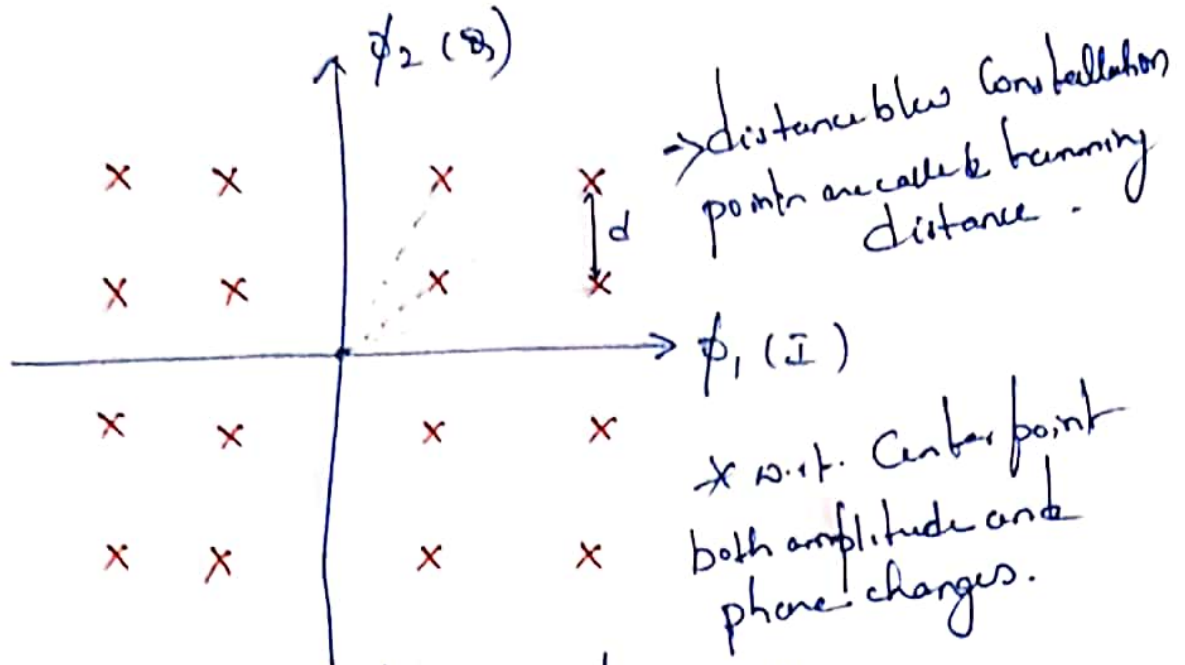 ϕ2 (Q)
→ distance b/w Constellation
points are called hamming
distance.
d
ϕ1 (I)
* w.r.t. Center point
both amplitude and
phase changes.